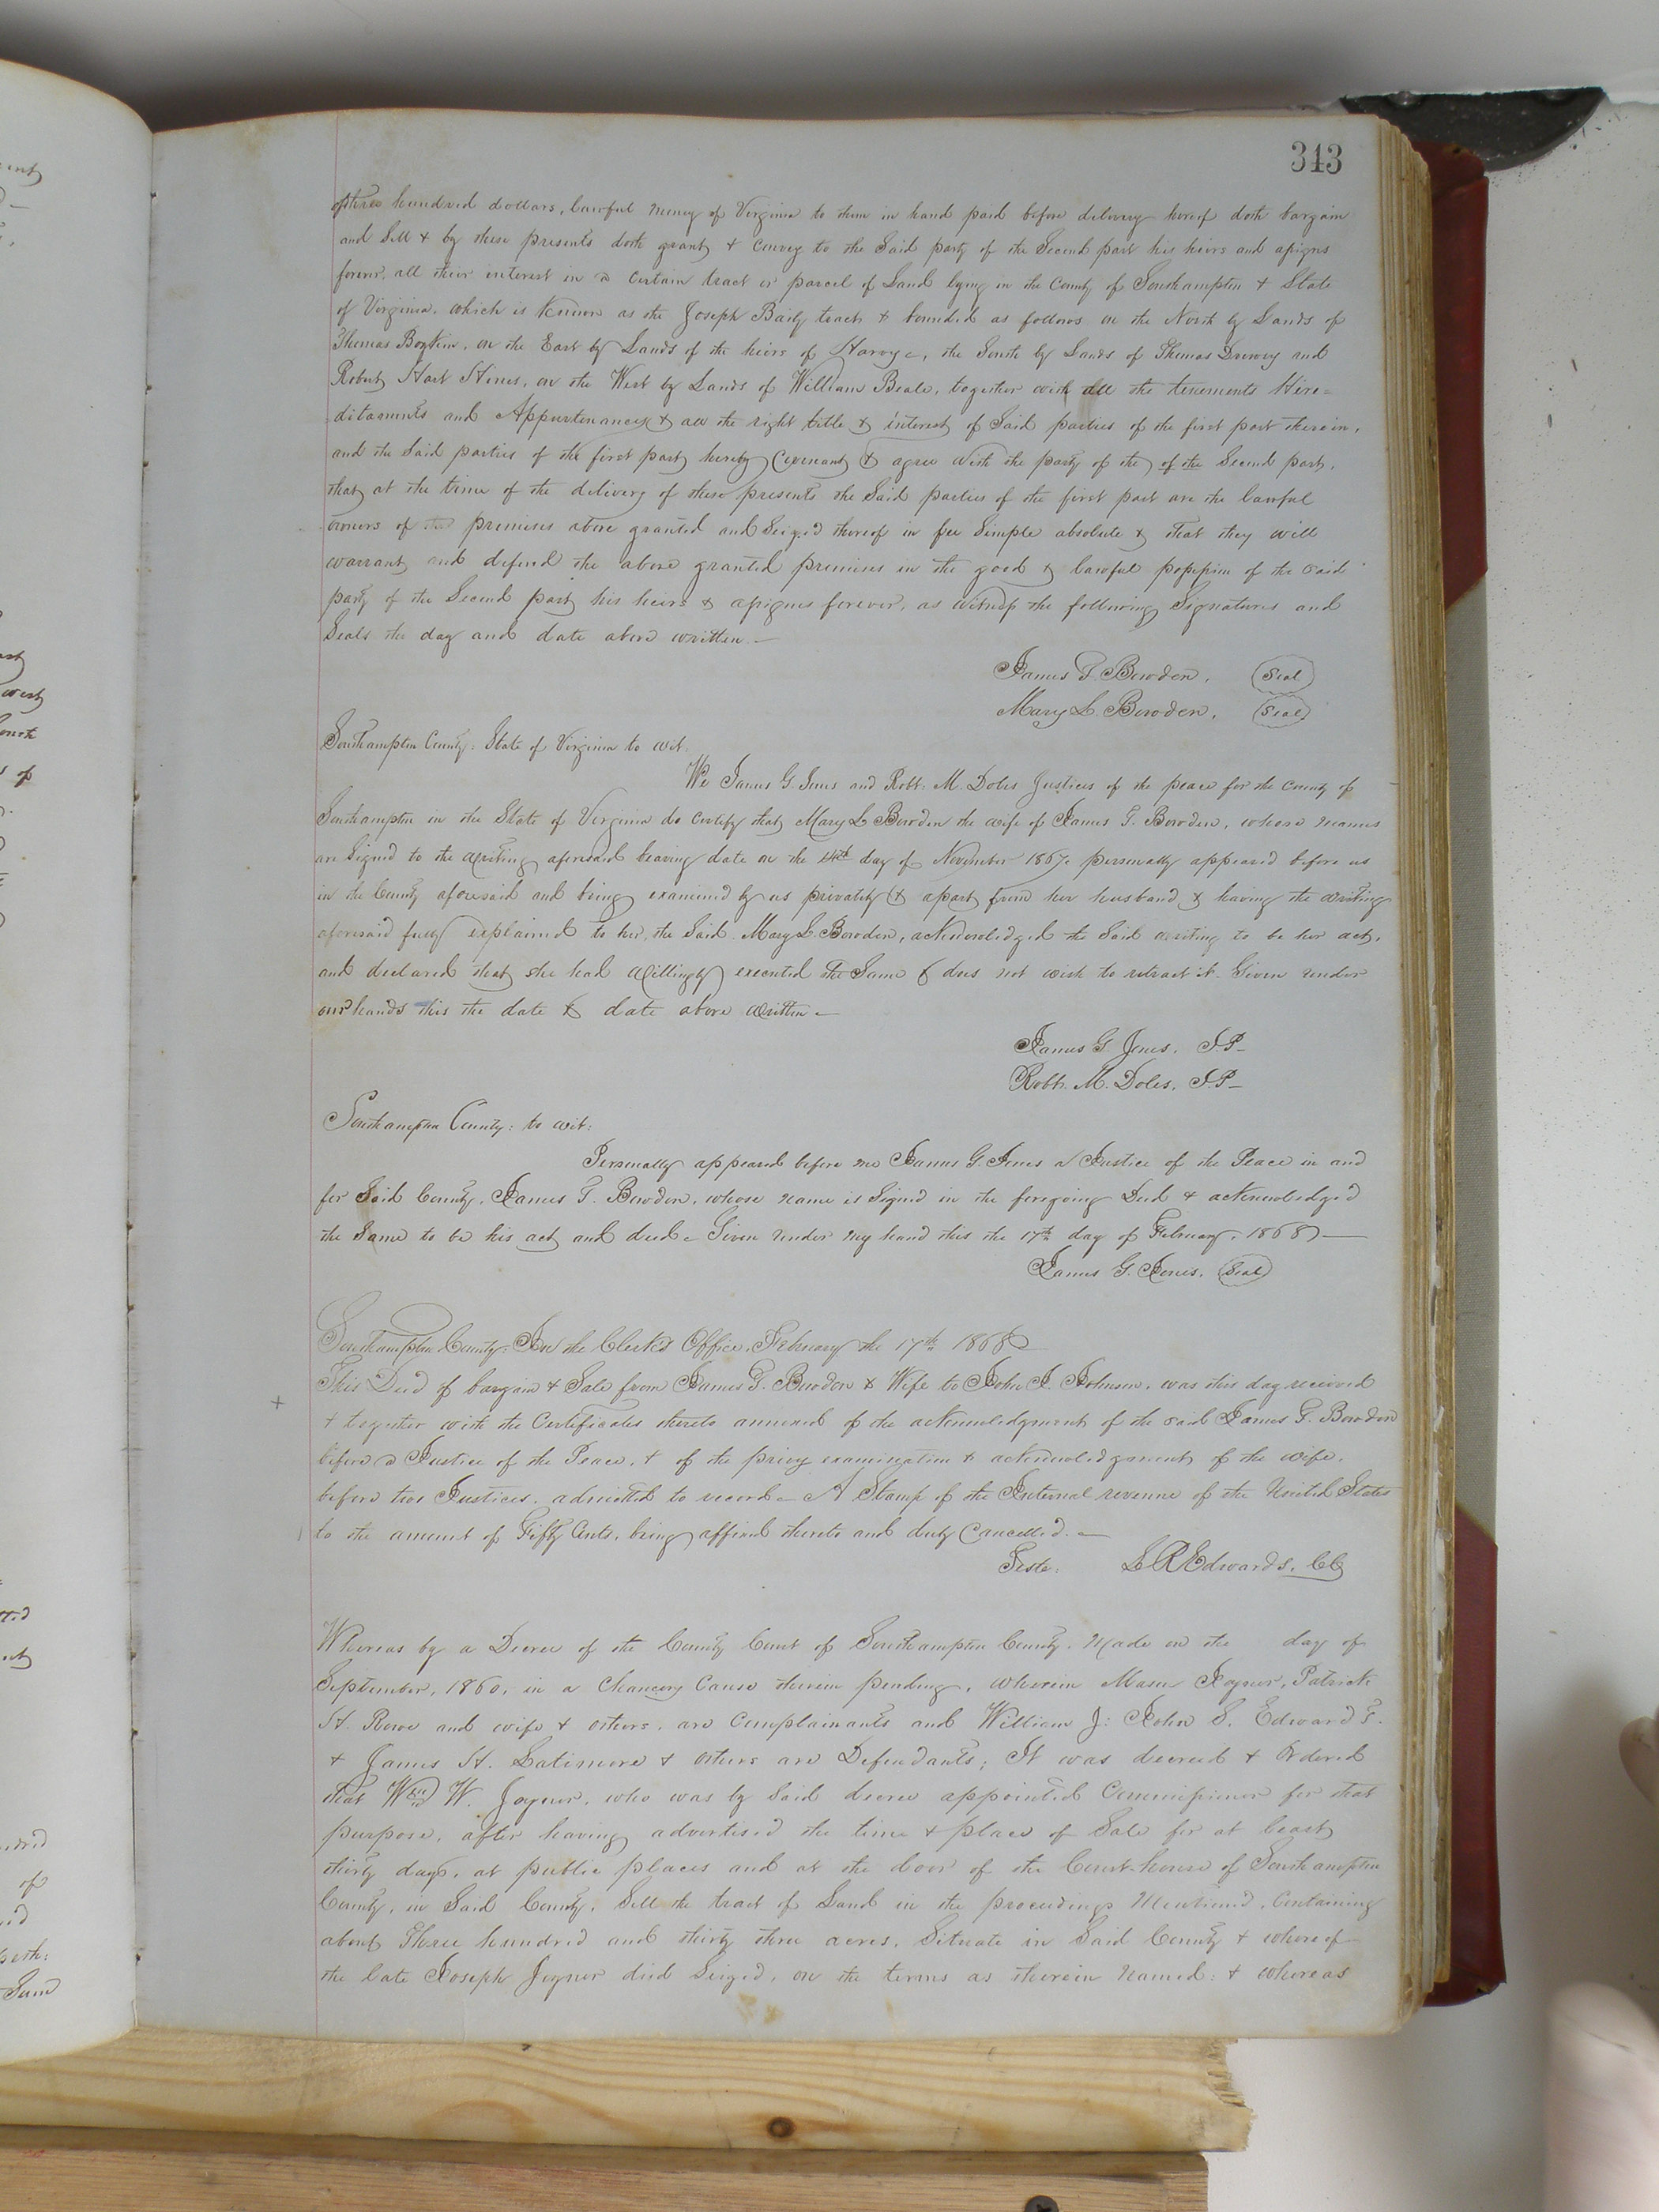 343
of three hundred dollars, lawful money of Virginia to them in hand paid before delivery hereof doth bargain
and Sell & by these presents doth grant & convey to the Said party of the Second part his heirs and assigns
forever, all their interest in a certain tract or parcel of Land lying in the County of Southampton & State
of Virginia, which is Known as the Joseph Baily tract & bounded as follows on the North by Lands of
Thomas Boykin, on the East by Lands of the heirs of Harvy, the South by Lands of Thomas Drewry and
Robert Hart Hines, on the West by Lands of William Beale, together with all the tenements Here=
ditaments and Appurtenances & all the right title & interest of Said parties of the first part therein,
and the Said parties of the first part hereby Covenant & agree with the party of the of the Second part,
that at the time of the delivery of these presents the Said parties of the first part are the lawful
owners of the premises above granted and Seized thereof in fee Simple absolute & that they will
warrant and defend the above granted premises in the good & lawful possession of the said
party of the Second part his heirs & assignes forever, as witness the following Signatures and
Seals the day and date above written —
James T. Bowden. (Seal)
Mary L. Bowden. (Seal)
Southampton County: State of Virginia to wit:
We James G. Jones and Robt. M. Doles Justices of the peace for the County of
Southampton in the State of Virginia do certify that Mary L Bowden the wife of James T. Bowden, whose names
are Signed to the writing aforesaid bearing date on the 14th day of November 1867. personally appeared before us
in the County aforesaid and being examined by us privately & apart from her husband & having the writing
aforesaid fully explained to her, the Said Mary L. Bowden, acknowledged the Said writing to be her act,
and declared that she had willingly executed the Same & does not wish to retract it. Given under
our hands this the date & date above written —
James G. Jones. J.P—
Robt. M. Doles, J.P—
Southampton County: to wit:
Personally appeared before me James G. Jones a Justice of the Peace in and
for Said County, James T. Bowden, whose name is Signed in the foregoing Deed & acknowledged
the Same to be his act and deed — Given under my hand this the 17th day of February, 1868 —
James G. Jones. (Seal)
Southampton County: In the Clerk's Office, February the 17th 1868
This Deed of bargain & Sale from James T. Bowden & Wife to John J. Johnson, was this day received
+ & together with the Certificates thereto annexed of the acknowledgment of the said James T. Bowden
before a Justice of the Peace, & of the privy examination & acknowledgment of the wife,
before two Justices, admitted to record — A Stamp of the Internal revenue of the United States
to the amount of Fifty Cents, being affixed thereto and duly Cancelled. —
Teste: L R Edwards, CC
Whereas by a Decree of the County Court of Southampton County, Made on the day of
September, 1860, in a Chancery Cause therein pending, wherein Mason Joyner, Patrick
H. Rowe and wife & others, are Complainants and William J: John S. Edward T.
& James H. Latimore & others are Defendants; It was decreed & Ordered
that Wm W. Joyner, who was by Said decree appointed Commissioner for that
purpose, after having advertised the time & place of Sale for at least
thirty days, at public places and at the door of the Court-house of Southampton
County, in Said County, Sell the tract of Land in the proceedings Mentioned, Containing
about Three hundred and thirty three acres, Situate in Said County & whereof
the late Joseph Joyner died Seized, on the terms as therein Named: & whereas